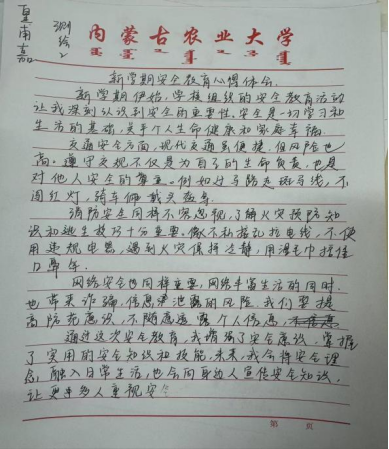 夏南嘉
测绘2
内蒙古农业大学
新学期安全教育心得体会
新学期伊始,学校组织的安全教育活动
让我深刻认识到安全的重要性。安全是一切学习和
生活的基础,关乎个人生命健康和家庭幸福
交通安全方面,现代交通虽便捷,但风险也
高。遵守交规不仅是为自己的生命负责,也是
对他人安全的尊重。例如过马路走斑马线,不
闯红灯,骑车佩戴头盔等
消防安全同样不容忽视,了解火灾预防知
识和逃生技巧十分重要。像不私拉乱扯电线,不使
用违规电器,遇到火灾保持冷静,用湿毛巾捂住
口鼻等。
网络安全也同样重要,网络丰富生活的同时,
也带来诈骗、信息泄露的风险。我们要提
高防范意识,不随意透露个人信息,
通过这次安全教育,我增强了安全意识,掌握
了实用的安全知识和技能,未来,我会将安全理
念,融入日常生活,也会向身边人宣传安全知识,
让更多人重视安全
第 页